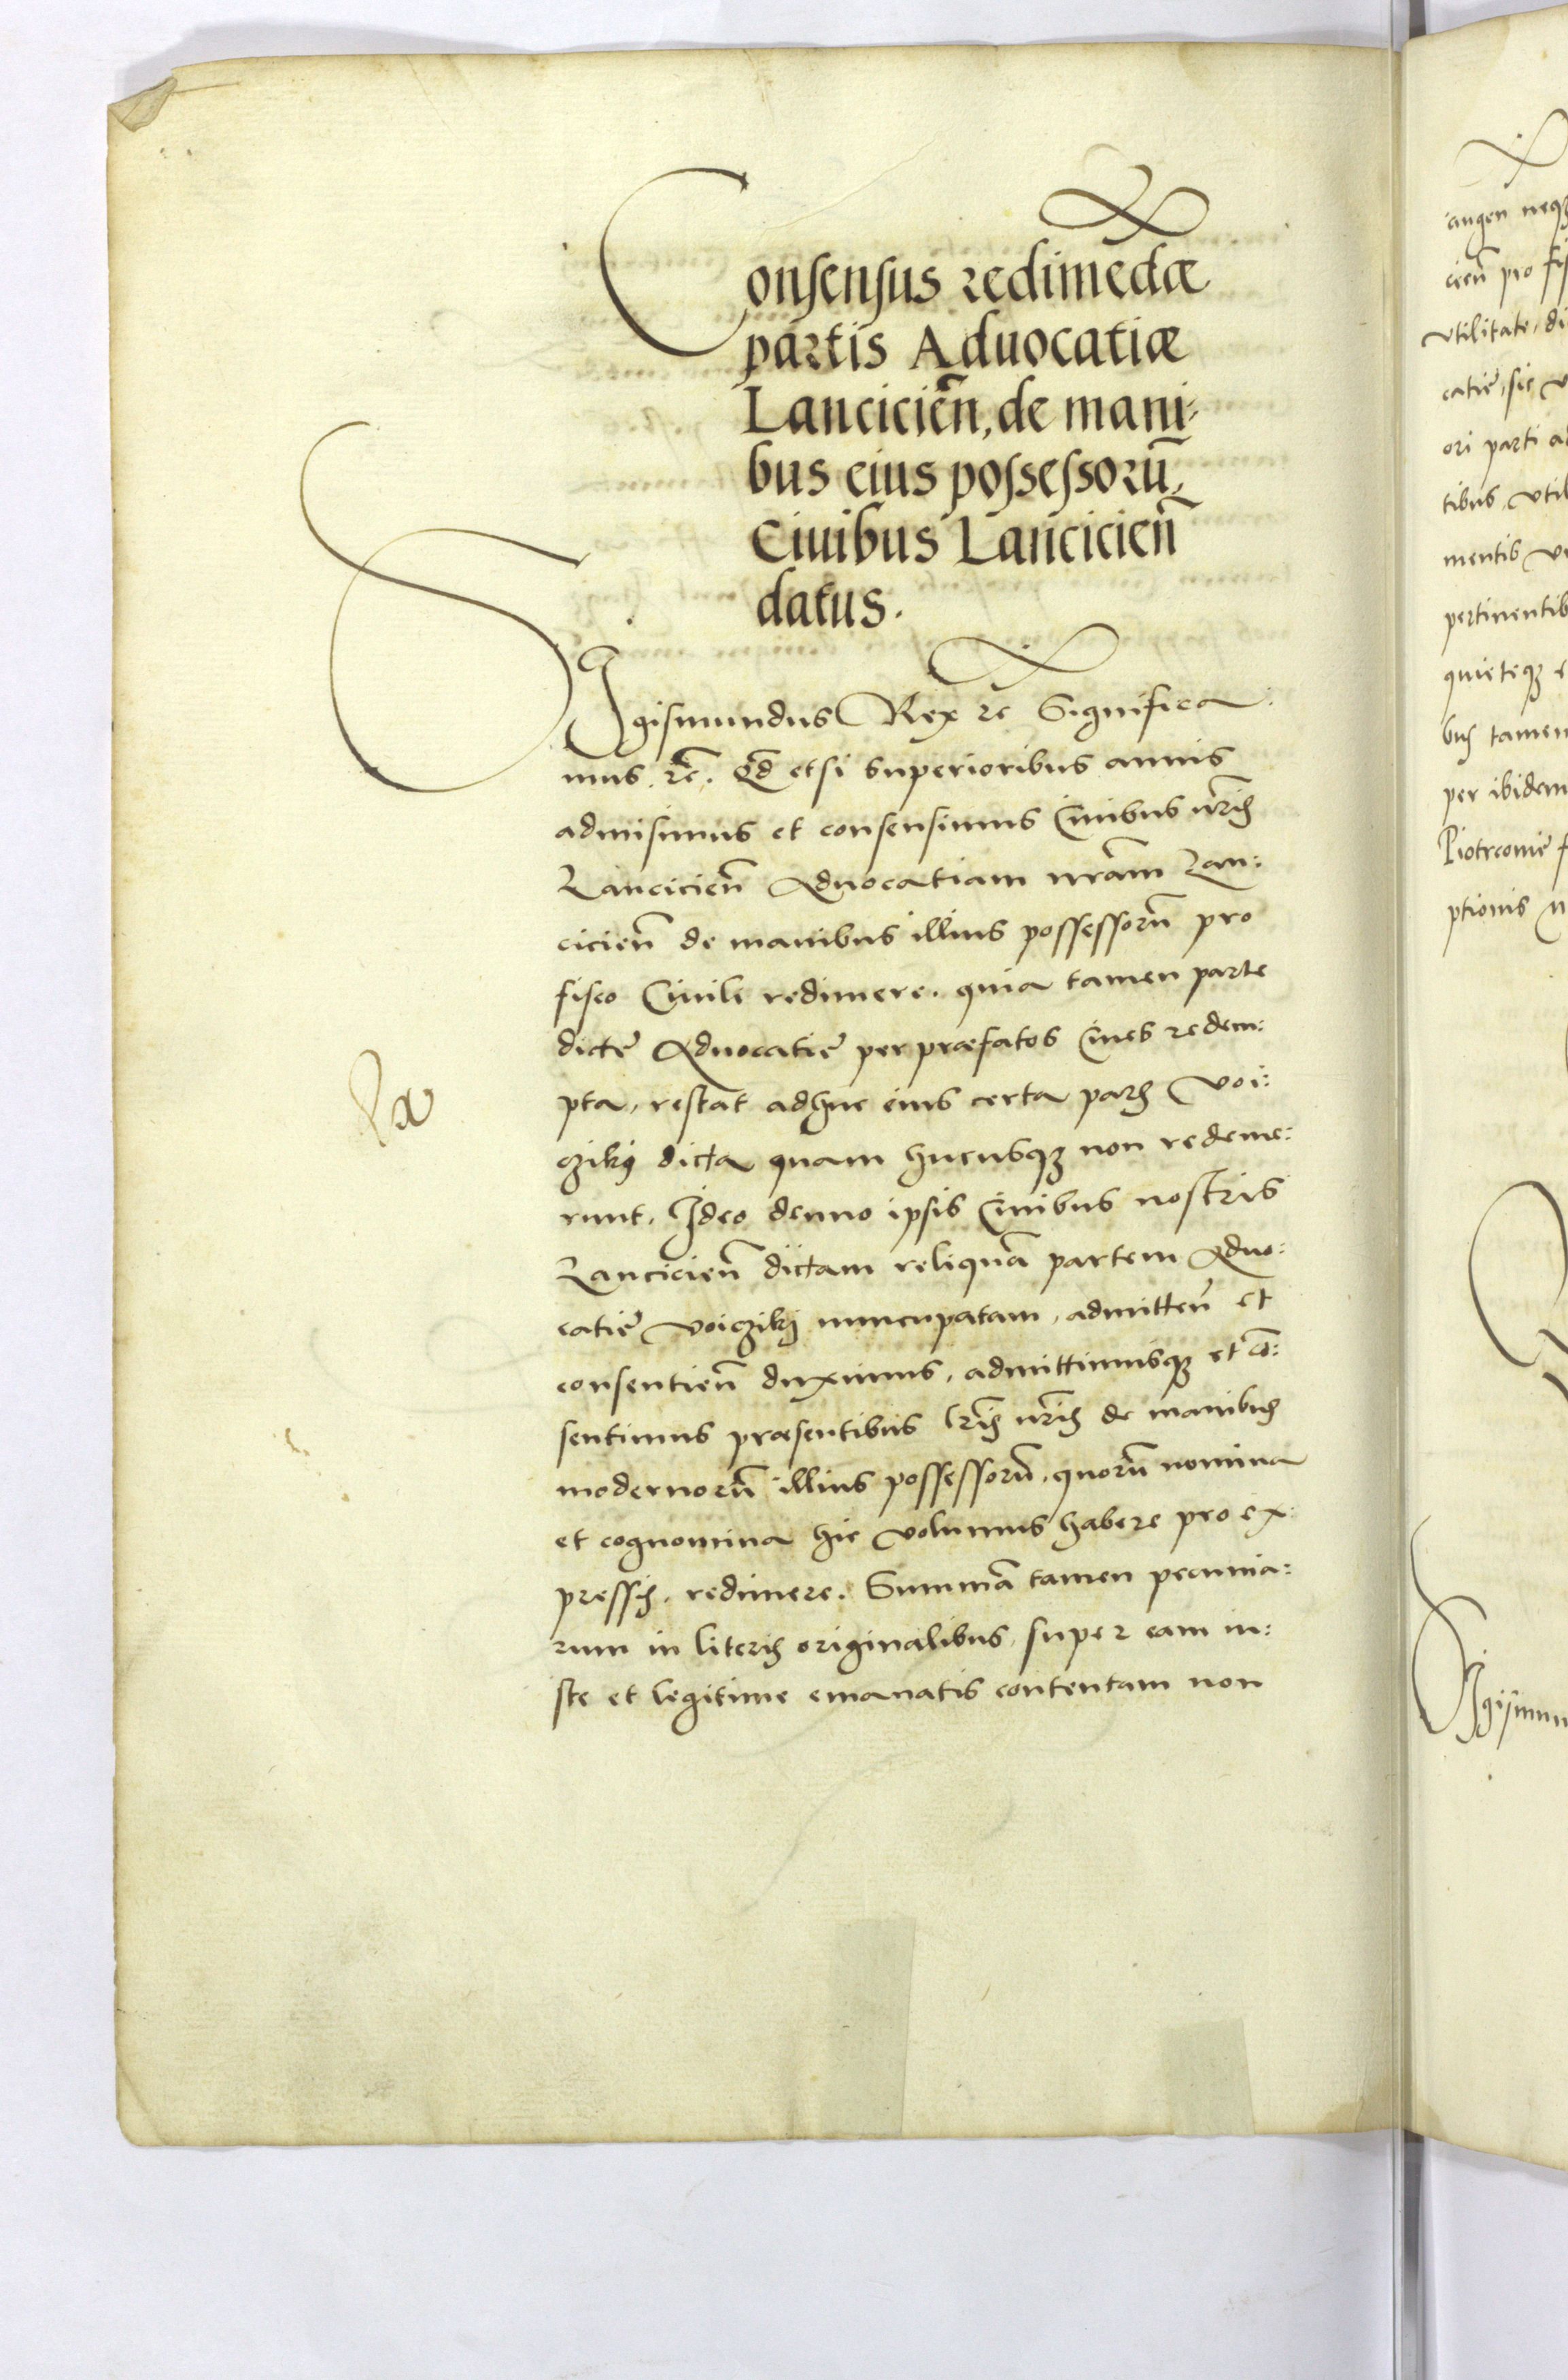 Consensus redimēdæ
partis Aduocatiæ
Lancicień, de mani:
bus eius possessorū,
Ciuibus Lancicień
datus.
Sigismundus Rex rc Significa:
mus. rc̄. Qd̄ etsi superioribus annis
admisimus et consensimus Ciuibus nr̄is
Lancicień Aduocatiam nr̄am Lan:
cicień de manibus illius possessorū pro
fisco Ciuili redimere. quia tamen parte
dictę Aduocatię per præfatos Ciues redem:
pta, restat adhuc eius certa pars Voi:
cziky dicta quam hucusqȝ non redeme:
runt. Ideo denuo ipsis Ciuibus nostris
Lancicień dictam reliquā partem Aduo:
catię Voicziky nuncupatam, admitteń et
consentień duximus, admittimusqȝ et cō:
sentimus præsentibus lr̄is nr̄is de manibus
modernorū illius possessorū, quorū nomina
et cognomina hic volumus habere pro ex:
pressis, redimere. Summā tamen pecunia:
rum in literis originalibus, super eam iu:
ste et legitime emanatis contentam non
iangen neqȝ
cień pro fis
vtilitate, di
catię, sic v
ori parti a
tibus, vtil
mentis v
pertinentib
quieteqȝ
bus tamen
per ibidem
Piotrcouię
ptionis n
Sigismun